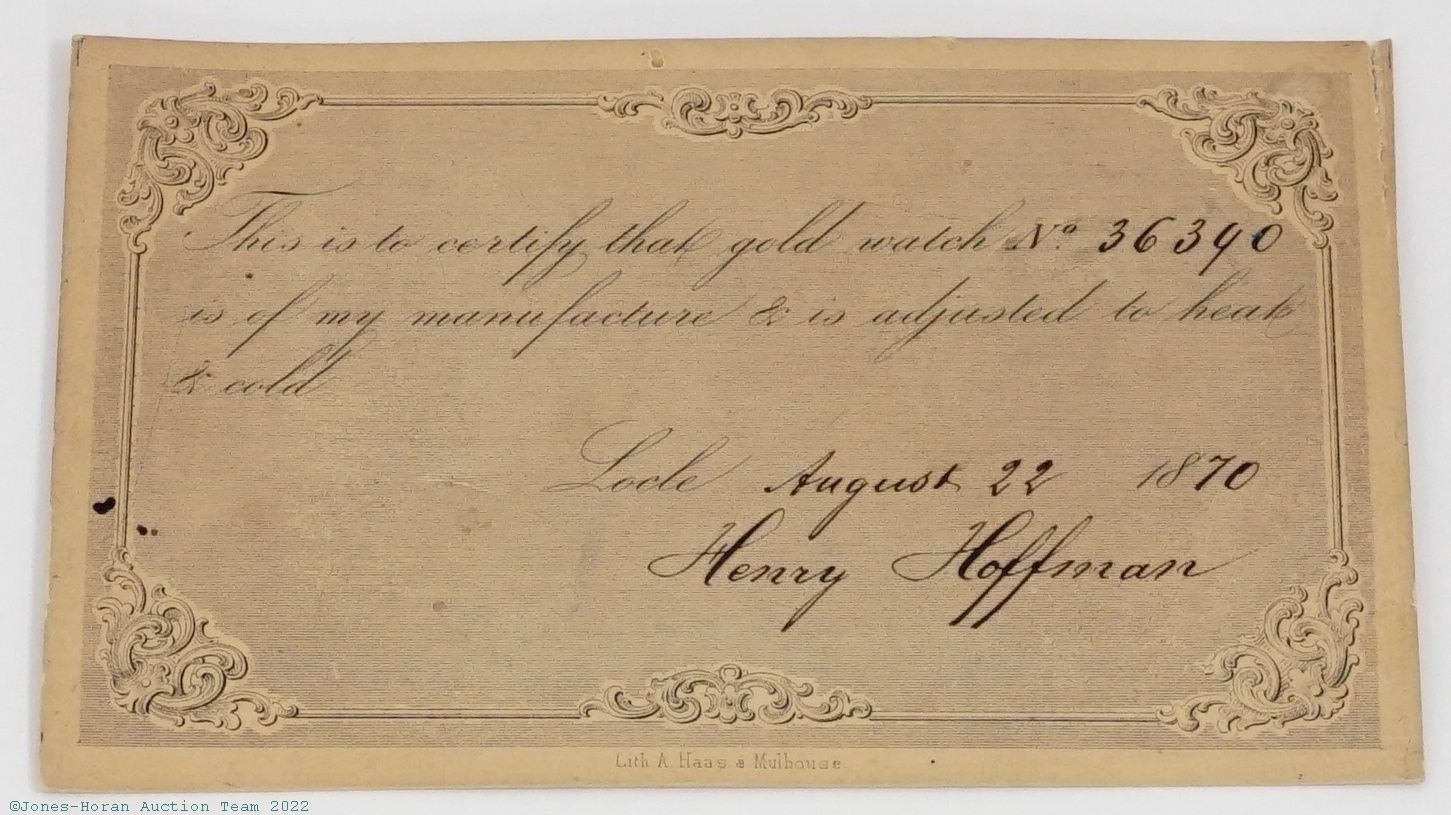 This is to certify that gold watch No. 36390
is of my manufacture & is adjusted to heat
& cold
Locle August 22 1870
Henry Hoffman
Lith A. Haas a Mulhouse
©Jones-Horan Auction Team 2022